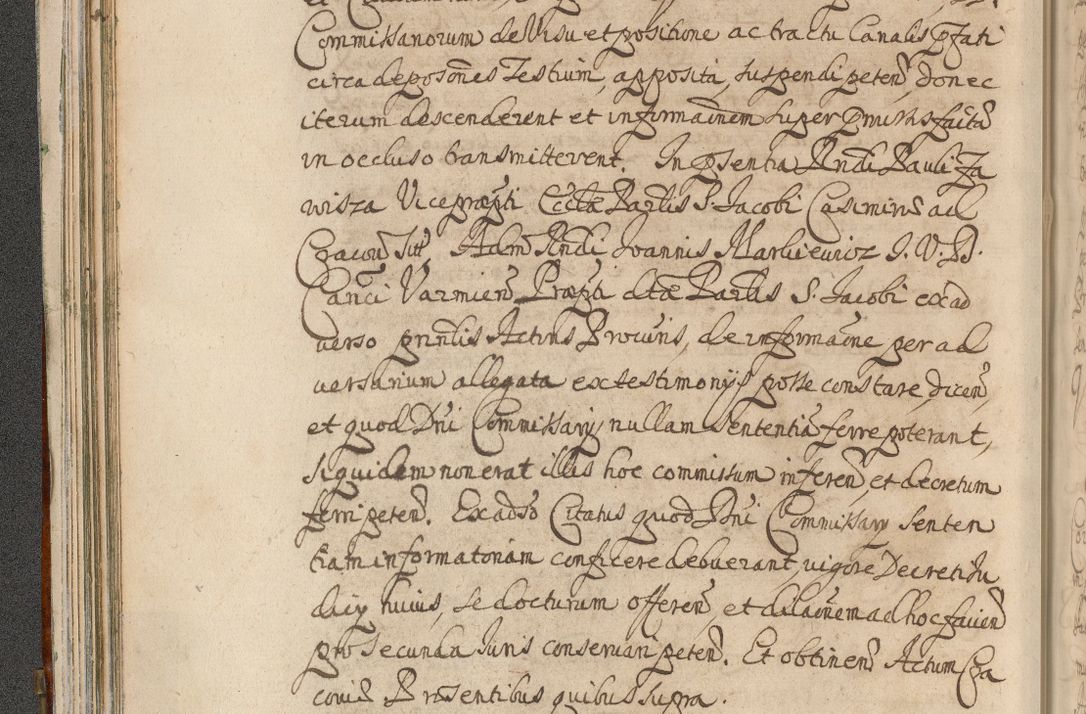 Commissariorum de visu et positione ac tractu Canalis pfati
circa deposones Testium, apposita, suspendi peten, donec
iterum descenderent et informaonem super pmissis factā
in occluso transmitterent. In psentia Rndi Pauli Za
wisza Vicepræpti Ecclæ Parlis S. Jacobi Casimiriæ ad
Cracou Sitt, Adm Rndi Joannis Markiewicz J. V. D.
Canci Varmien Præpti dtæ Parlis S. Jacobi ex ad
verso prntis Actius Procuris, de informaone per ad
versarium allegata ex testimonijs posse constare, dicen,
et quod Dni Commissarij nullam Sententiā ferre poterant,
siquidem non erat illis hoc commissum inferen, et decretum
ferri peten. Ex adso Citatus quod Dni Commissarij Senten
tiam informatoriam conficere debuerant, vigore Decreti Ju
dicij huius, se docturum offeren, et dilaonem ad hoc facien
pro secunda Juris conservari peten. Et obtinen Actum Cra
coviæ Præsentibus quibus supra.